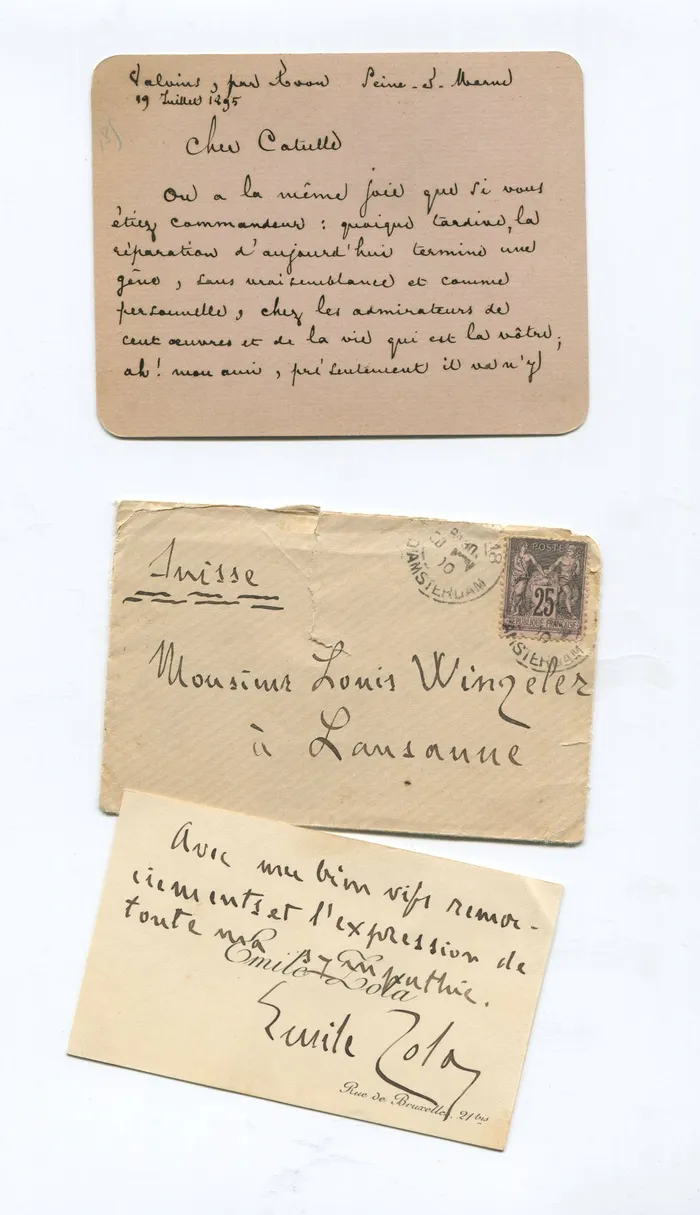 Valvins, par Avon Seine-&-Marne
19 Juillet 1895
Cher Catulle
On a la même joie que si vous
étiez commandeur : quoique tardive, la
réparation d'aujourd'hui termine une
gêne, sans vraisemblance et comme
personnelle, chez les admirateurs de
cent œuvres et de la vie qui est la vôtre ;
ah ! mon ami, présentement il va n'y
AMSTERDAM
POSTE
25
REPUBLIQUE FRANÇAISE
AMSTERDAM
Suisse
Monsieur Louis Winzeler
à Lausanne
Avec mes bien vifs remer-
ciements et l'expression de
toute ma sympathie.
Emile Zola
Emile Zola
Rue de Bruxelles, 21bis